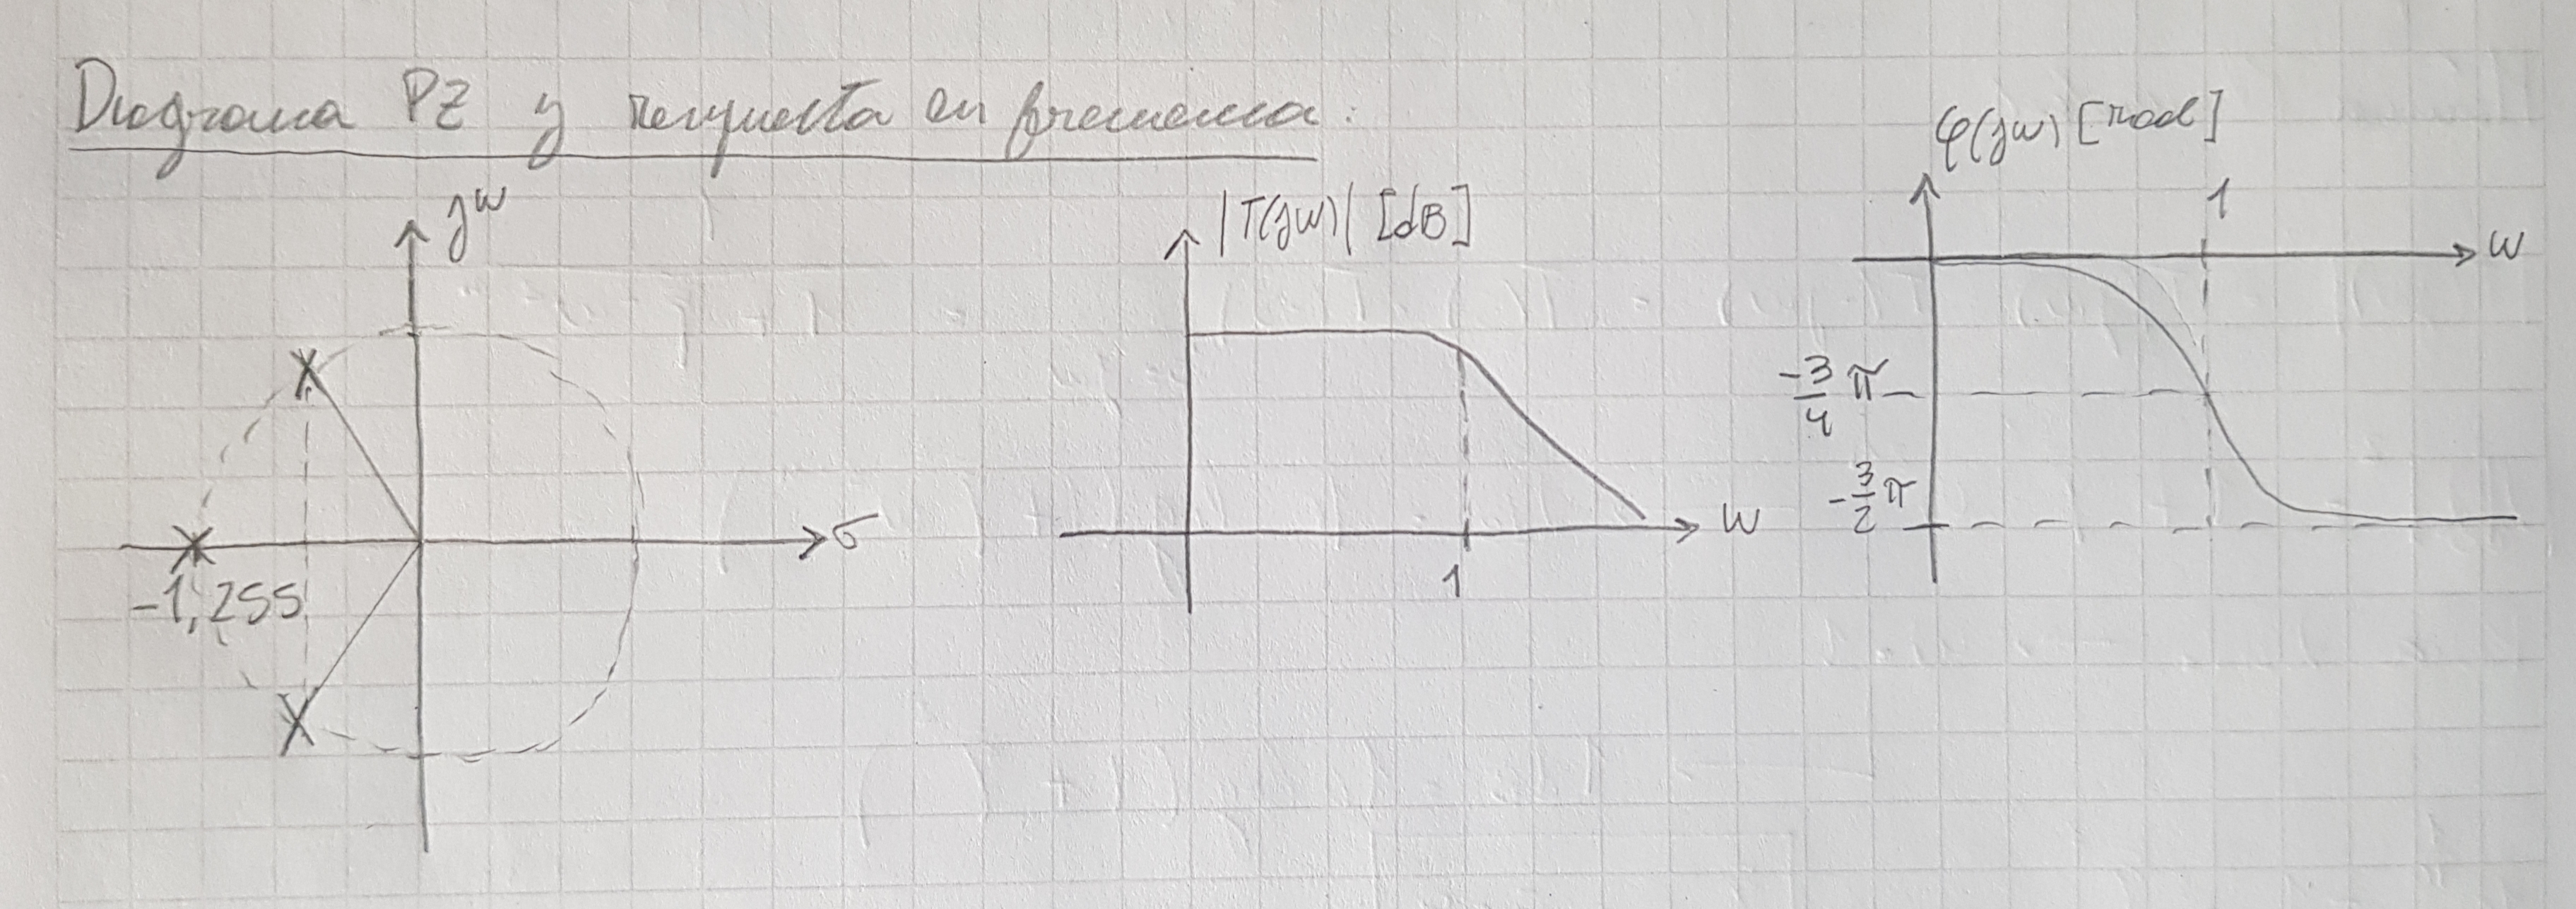 Diagrama PZ y respuesta en frecuencia:
jw
σ
-1,255
|T(jw)| [dB]
w
1
φ(jw) [rad]
1
w
-3/4 π
-3/2 π